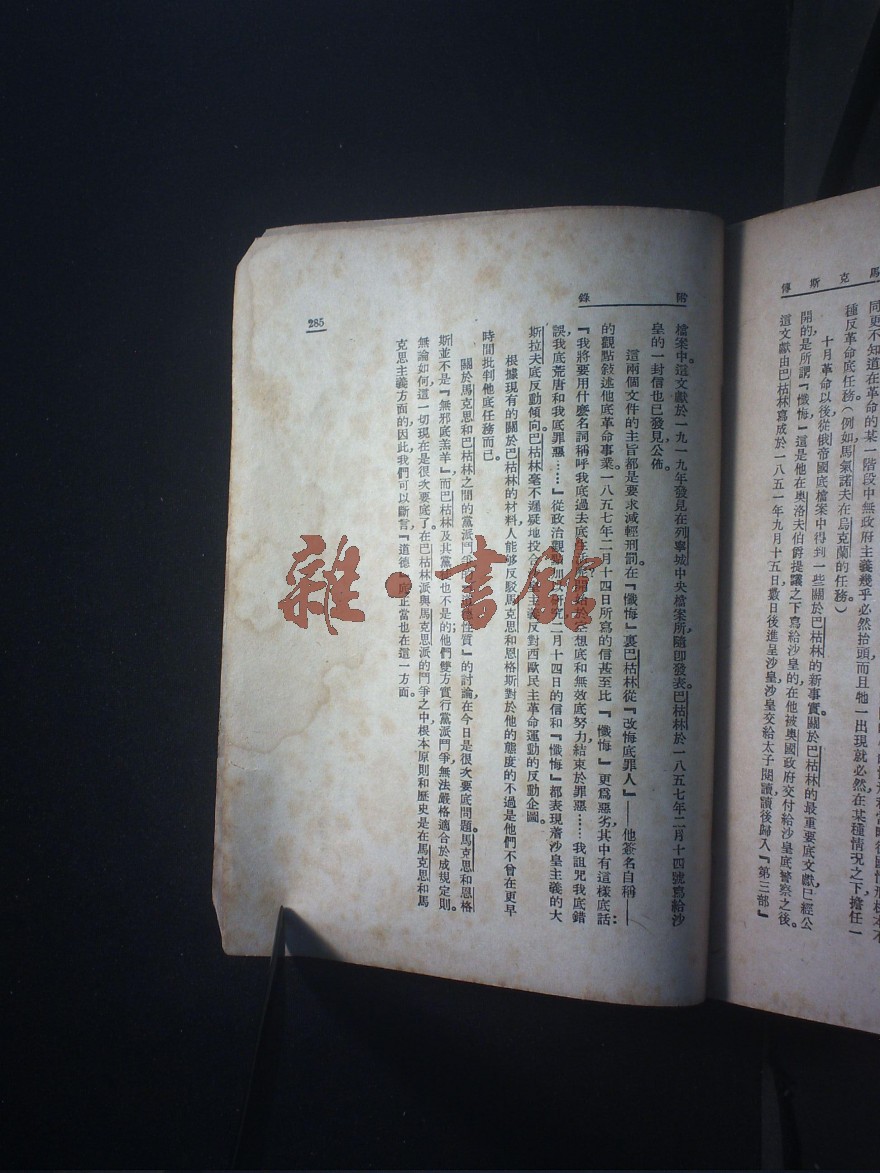 馬克斯傳
同更不知道在革命的某一階段中無政府主義幾乎必然抬頭而且牠一出現就必然在某種情況之下擔任一
種反革命底任務（例如馬氣諾夫在烏克蘭的任務）
十月革命以後從俄帝國底檔案中得到一些關於巴枯林的新事實。關於巴枯林的最重要底文獻，已經公
開的，是所謂『懺悔』這是他在奧洛夫伯爵提議之下寫給沙皇的，在他被奧國政府交付給沙皇底警察之後。
這文獻由巴枯林寫成於一八五一年九月十五日，數日後進呈沙皇，沙皇交給太子閱讀，讀後歸入『第三部』
附錄
檔案中。這文獻於一九一九年發見在列寧城中央檔案所，隨即發表。巴枯林於一八五七年二月十四號寫給沙
皇的一封信也已發見公佈。
這兩個文件的主旨都是要求減輕刑罰。在『懺悔』裏巴枯林從『改悔底罪人』——他簽名自稱——
的觀點敍述他底革命事業。一八五七年二月十四日所寫的信甚至比『懺悔』更爲惡劣，其中有這樣底話：
『我將要用什麽名詞稱呼我底過去底生活呢？開始於空想底和無效底努力，結束於罪惡……我詛咒我底錯
誤我底荒唐和我底罪惡……』從政治觀點加以研究，二月十四日的信和『懺悔』都表現著沙皇主義的大
斯拉夫底反動傾向。巴枯林毫不遲疑地投合沙皇主義反對西歐民主革命運動的反動企圖。
根據現有的關於巴枯林的材料，人能够反駁馬克思和恩格斯對於他的態度的不過是他們不曾在更早
時間批判他底任務而已。
關於馬克思和巴枯林之間的黨派鬥爭的『道德性質』的討論在今日是很次要底問題。馬克思和恩格
斯並不是『無邪底羔羊』，而巴枯林及其黨徒也不是的；他們雙方實行黨派鬥爭，無法嚴格適合於成規定則。
無論如何，這一切現在是很次要底了。在巴枯林派與馬克思派的鬥爭之中，根本原則和歷史是在馬克思和馬
克思主義方面的，因此，我們可以斷言，『道德』底正當也在這一方面。
285
雜·書館